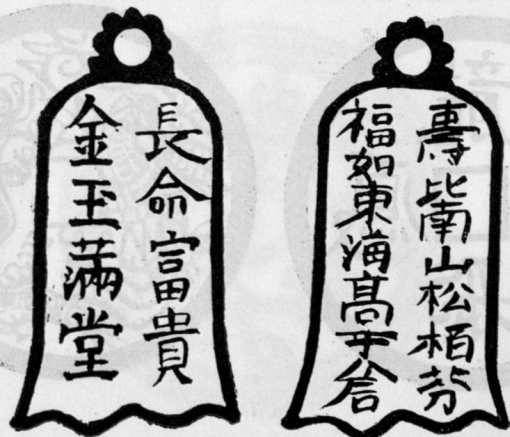 長命富貴
金玉滿堂
壽比南山松栢芬
福如東海髙